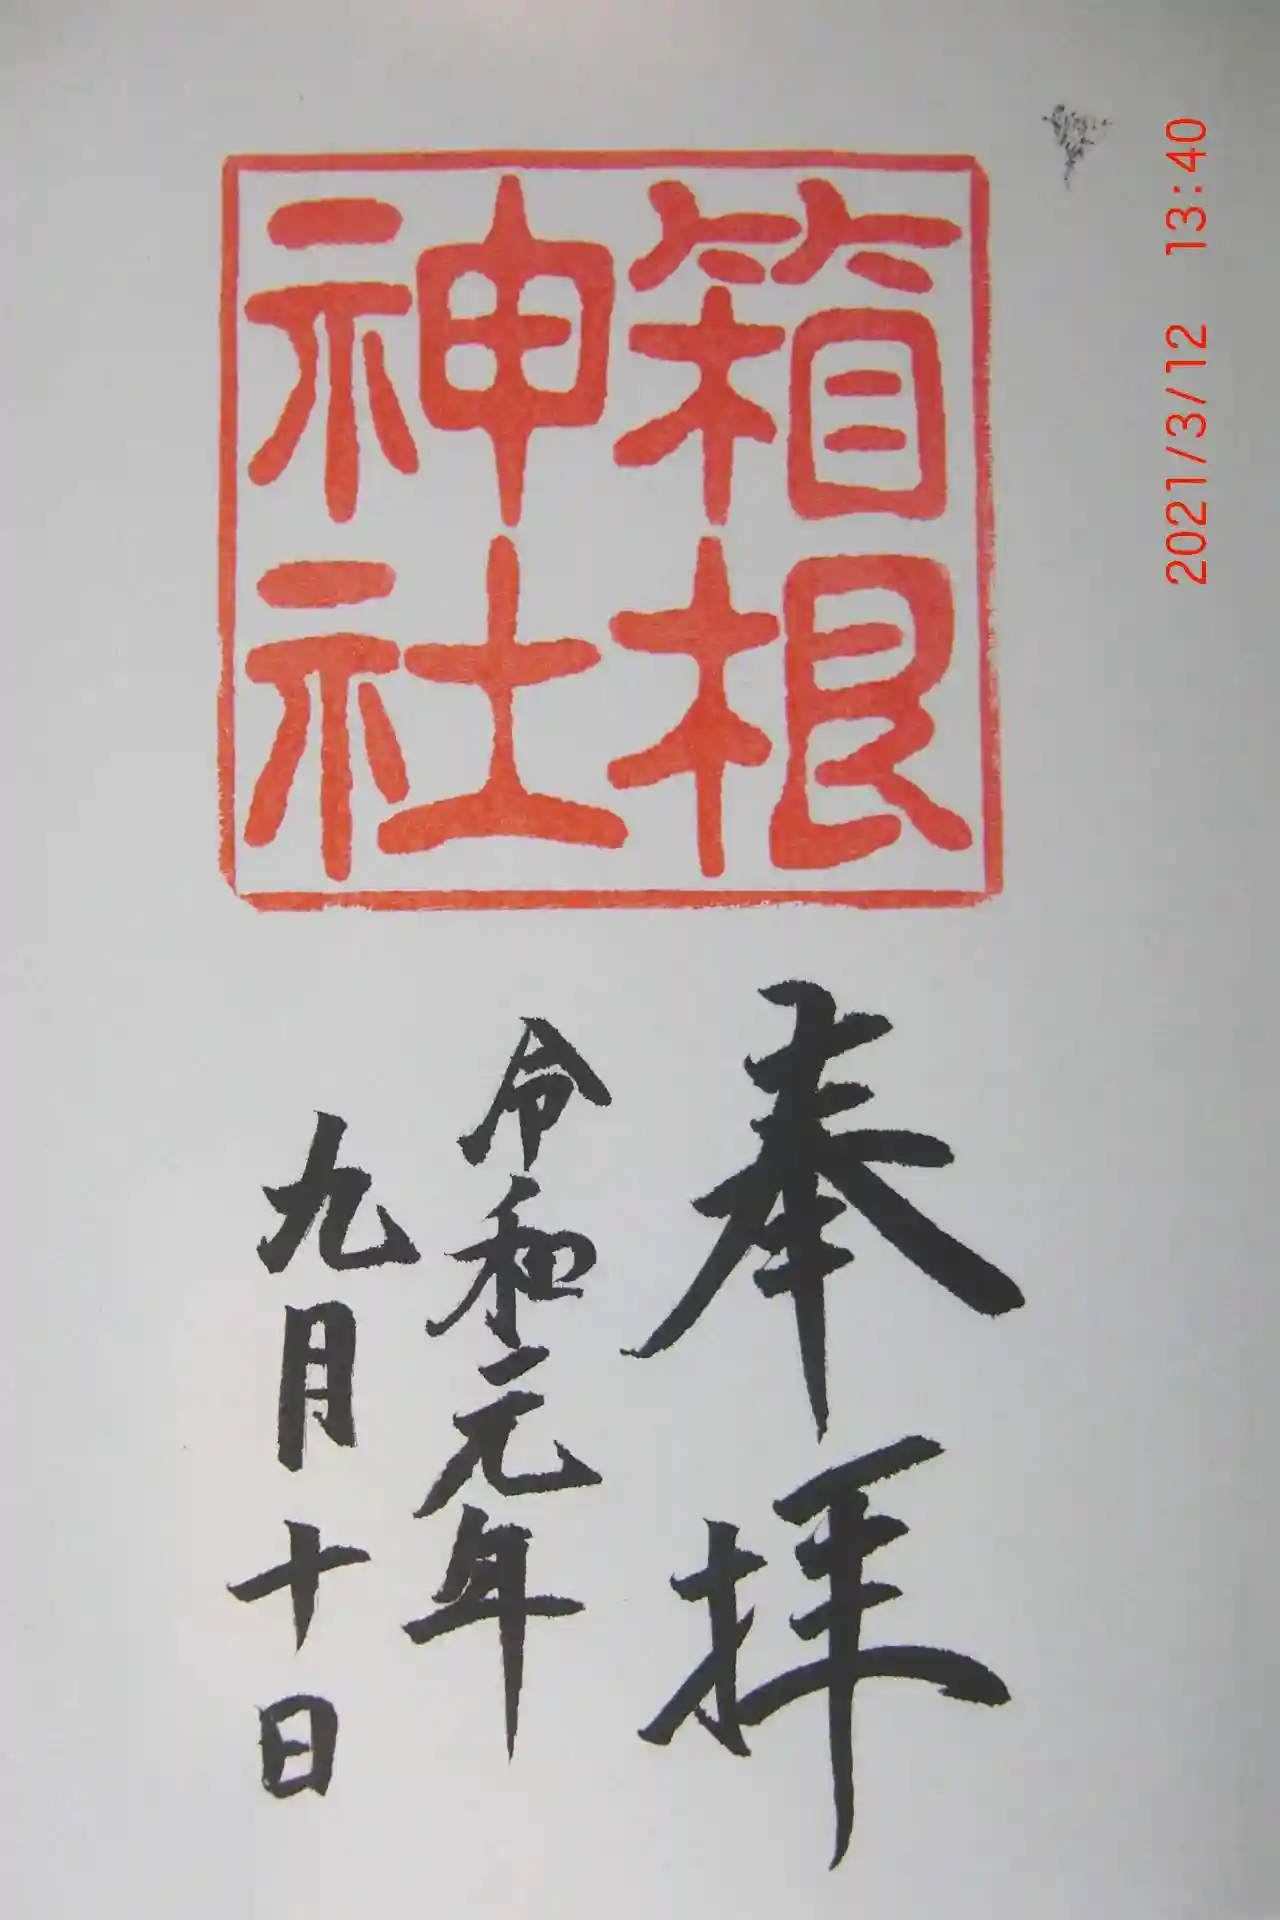 箱根
神社
奉拝
令和元年
九月十日
2021/3/12 13:40